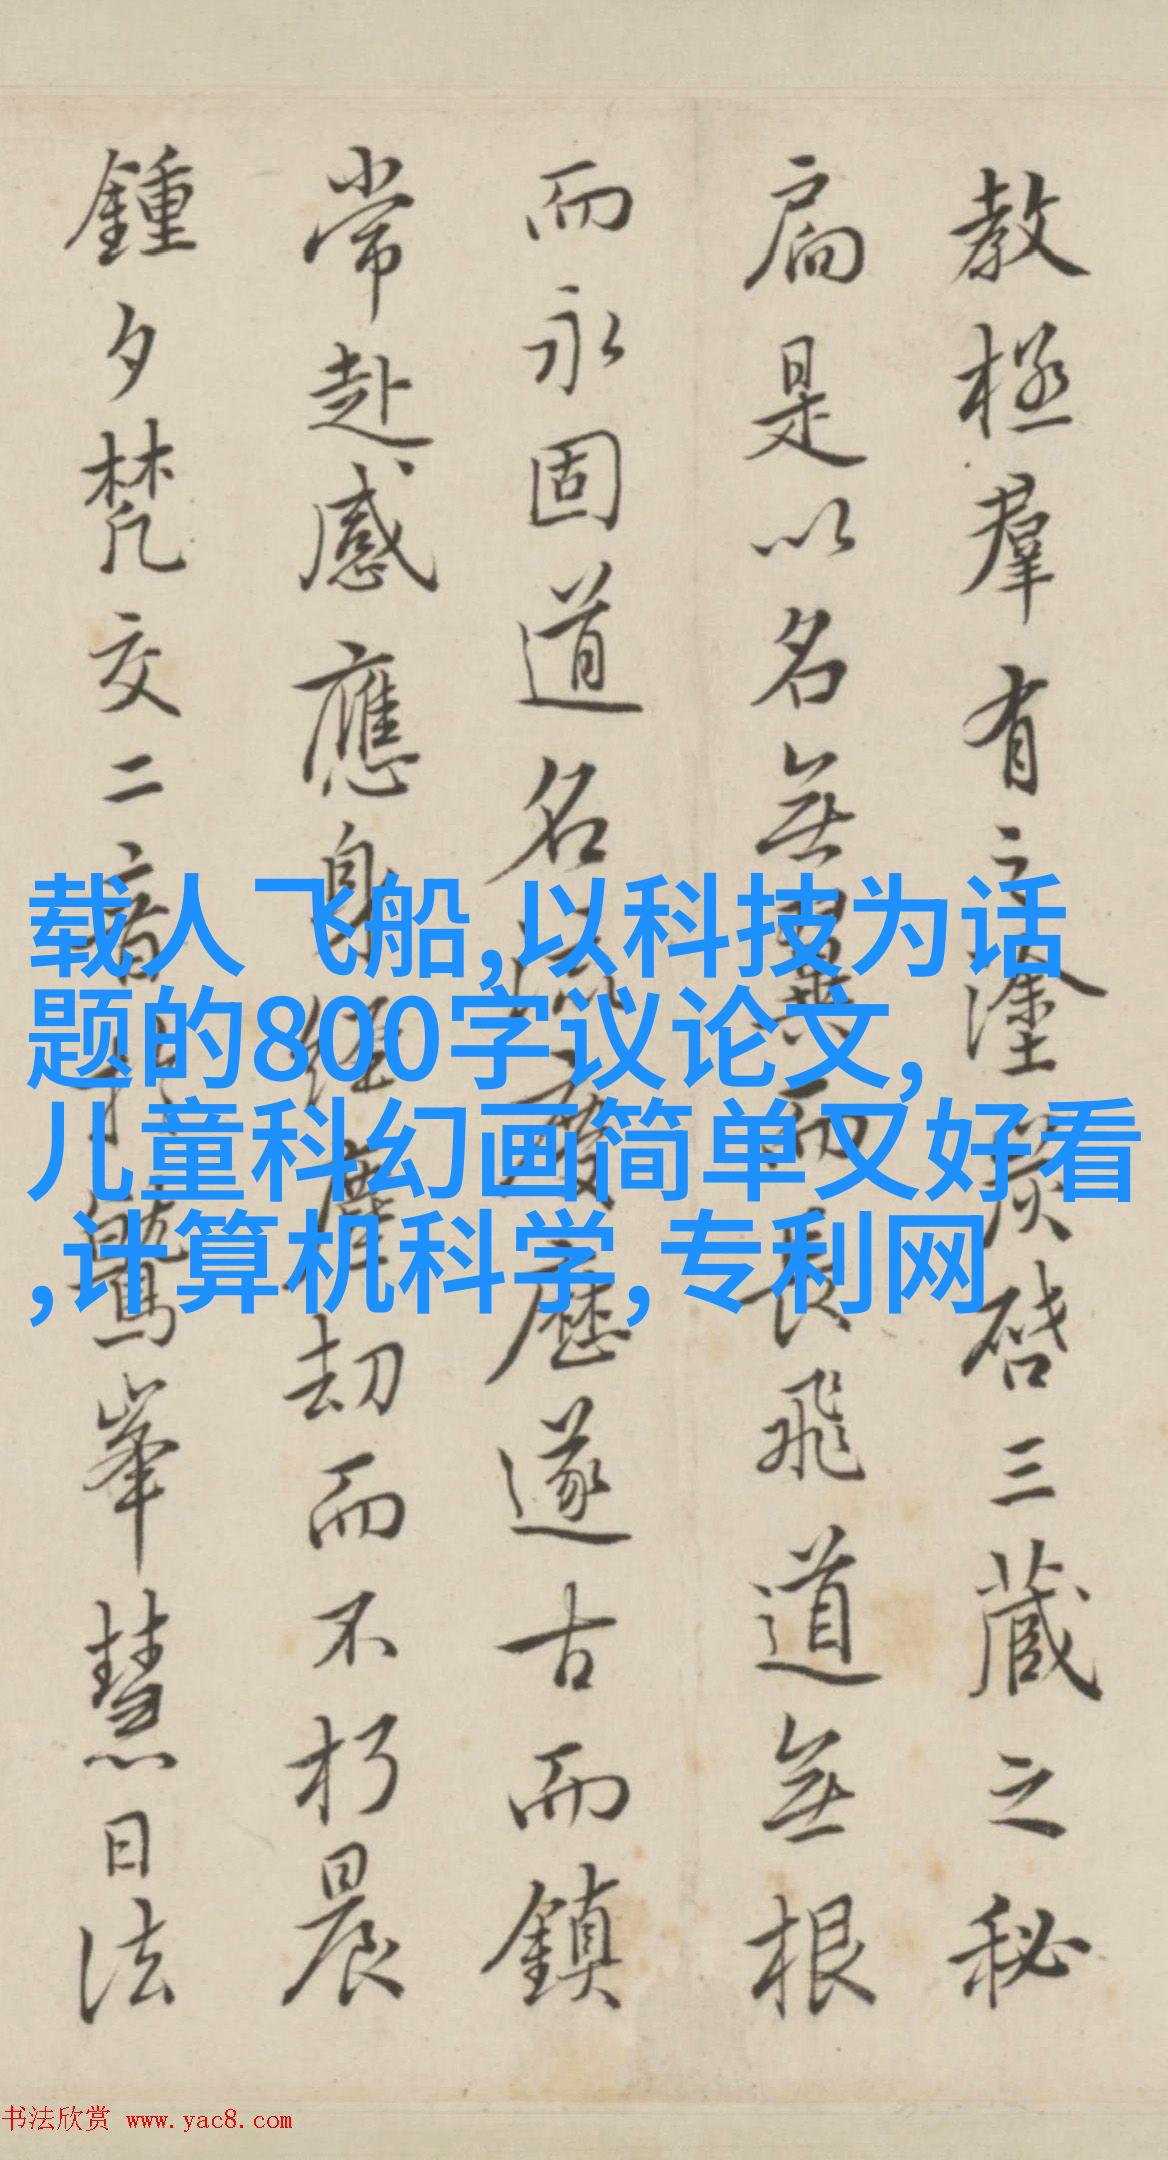 教極羣有之塗炭啓三藏之秘
扃是以名無翼而長飛道無根
而永固道名流慶歷遂古而鎮
常赴感應身經塵劫而不朽晨
鍾夕梵交二音於鷲峯慧日法
载人飞船,以科技为话
题的800字议论文,
儿童科幻画简单又好看
,计算机科学,专利网
书法欣赏 www.yac8.com